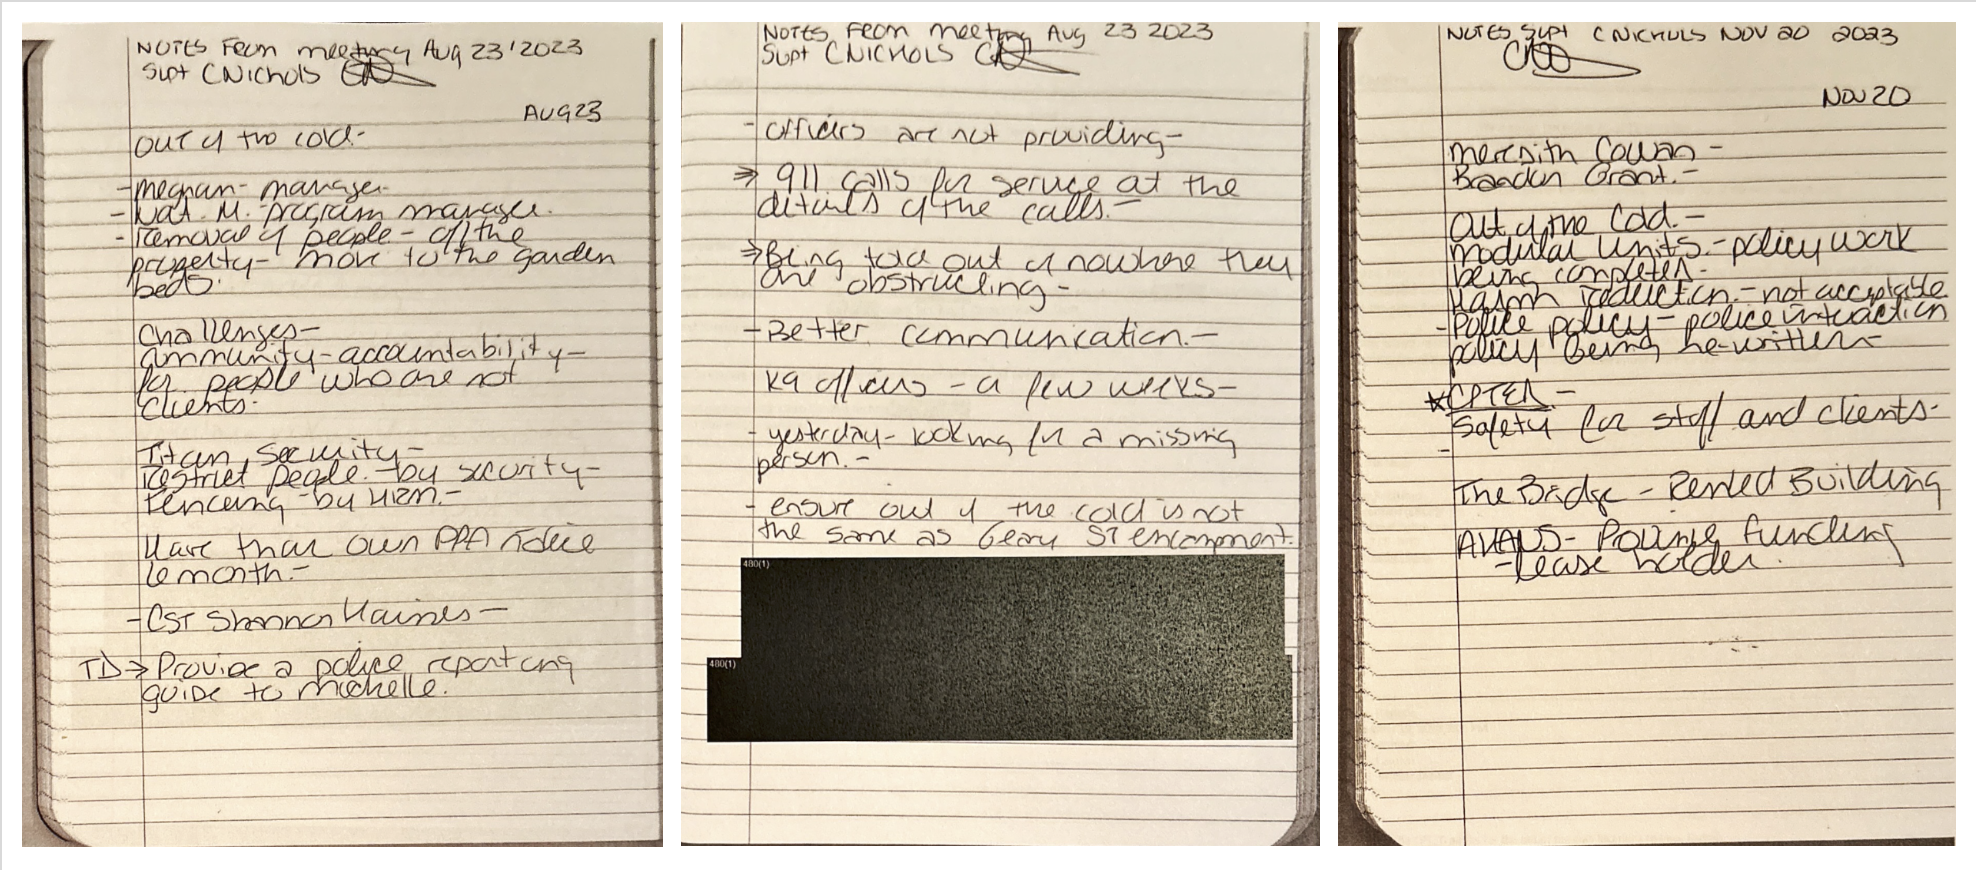 NOTES From meeting Aug 23 '2023
Supt C Nichols
AUG 23
Out of the cold-
- Meghan - manager
- Nat. M. - program manager.
- removal of people - off the
property - move to the garden
beds.
Challenges -
community - accountability -
for people who are not
clients.
Titan Security -
restrict people - by security -
Fencing - by HRM. -
Have their own PPA notice
6 month. -
- CST Shannon Haines -
TD → Provide a police reporting
guide to Michelle.
NOTES From meeting Aug 23 2023
Supt C Nichols
- officers are not providing -
⇒ 911 calls for service at the
details of the calls. -
⇒ Being told out of nowhere they
are obstructing -
- Better communication. -
K9 officers - a few weeks -
- yesterday - looking for a missing
person. -
- ensure out of the cold is not
the same as Geary ST encampment.
480(1)
480(1)
NOTES Supt C Nichols NOV 20 2023
NOV 20
Meredith Cowan -
Braeden Grant. -
Out of the Cold. -
modular units. - policy work
being completed -
Harm reduction. - not acceptable
- Police policy - police interaction
policy being re-written -
* CPTED -
Safety for staff and clients -
-
The Bridge - Rented Building
AHANS - Province funding
- Lease holder.